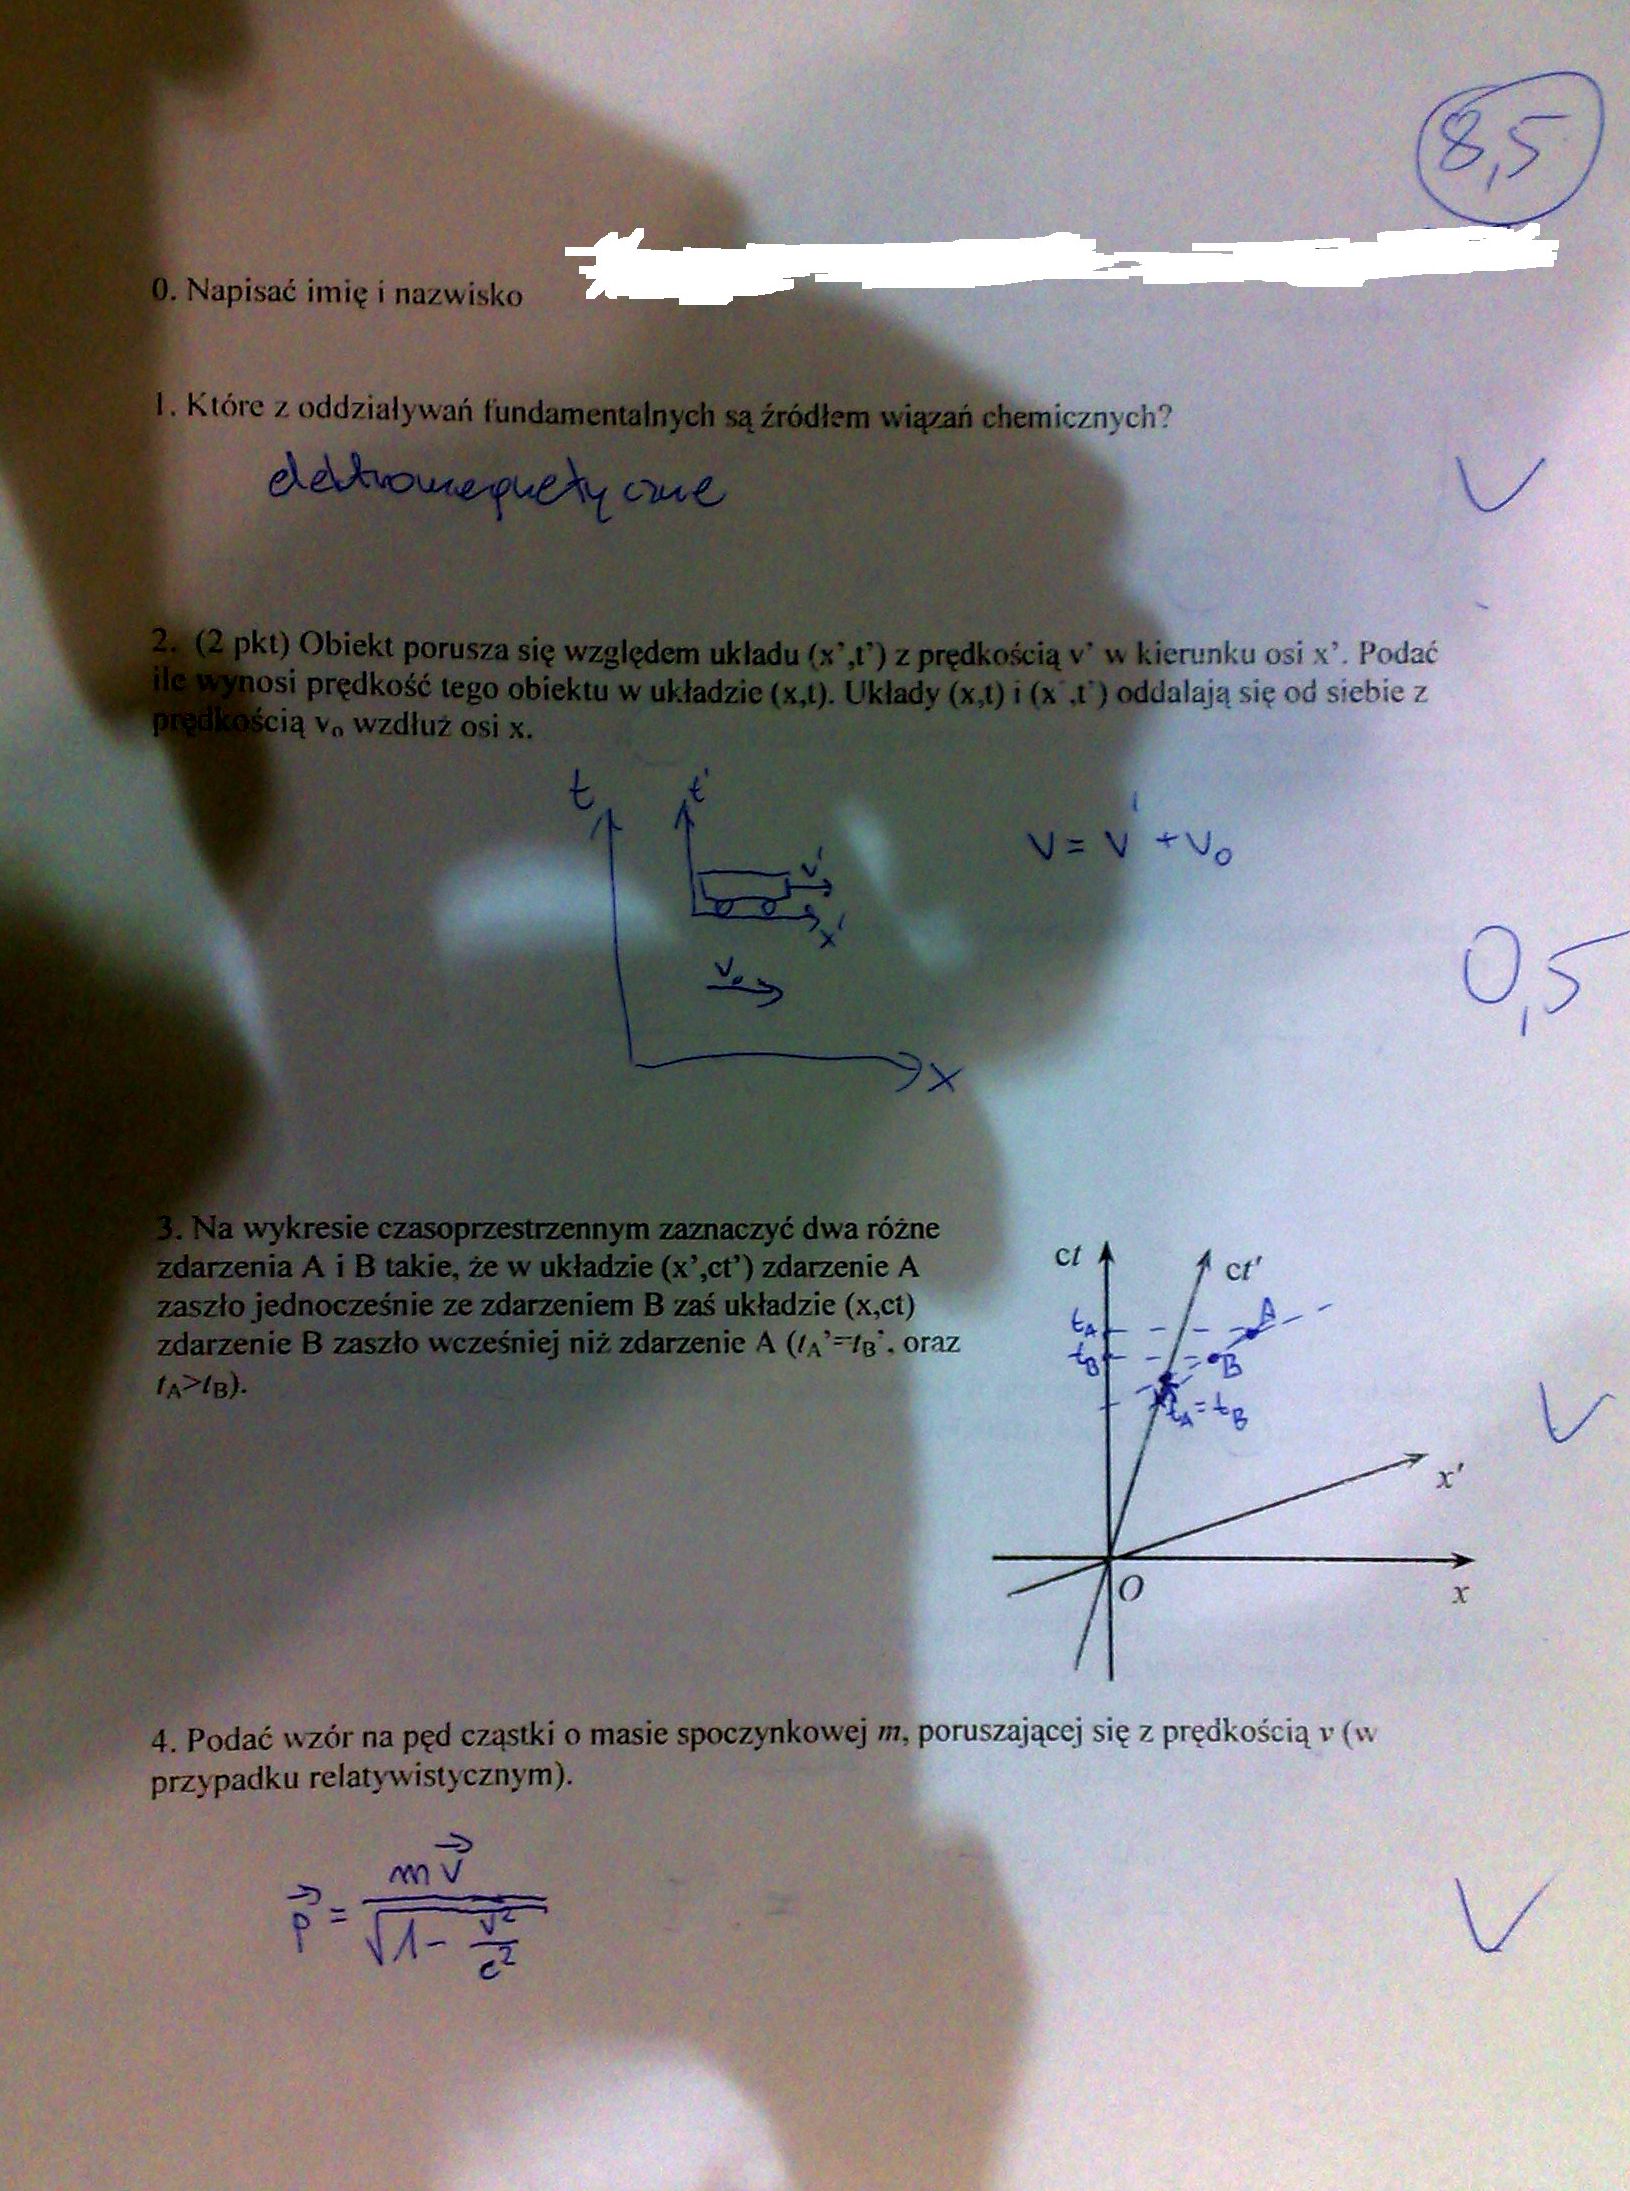 8,5
0. Napisać imię i nazwisko
1. Które z oddziaływań fundamentalnych są źródłem wiązań chemicznych?
elektromagnetyczne
2. (2 pkt) Obiekt porusza się względem układu (x',t') z prędkością v' w kierunku osi x'. Podać
ile wynosi prędkość tego obiektu w układzie (x,t). Układy (x,t) i (x',t') oddalają się od siebie z
prędkością v₀ wzdłuż osi x.
t
t'
v'
x'
v₀
x
v = v' + v₀
0,5
3. Na wykresie czasoprzestrzennym zaznaczyć dwa różne
zdarzenia A i B takie, że w układzie (x',ct') zdarzenie A
zaszło jednocześnie ze zdarzeniem B zaś układzie (x,ct)
zdarzenie B zaszło wcześniej niż zdarzenie A (t_A'=t_B', oraz
t_A>t_B).
ct
ct'
t_A
A
t_B
B
t_A = t_B
x'
O
x
4. Podać wzór na pęd cząstki o masie spoczynkowej m, poruszającej się z prędkością v (w
przypadku relatywistycznym).
p⃗ = mv⃗ / √(1 - v²/c²)